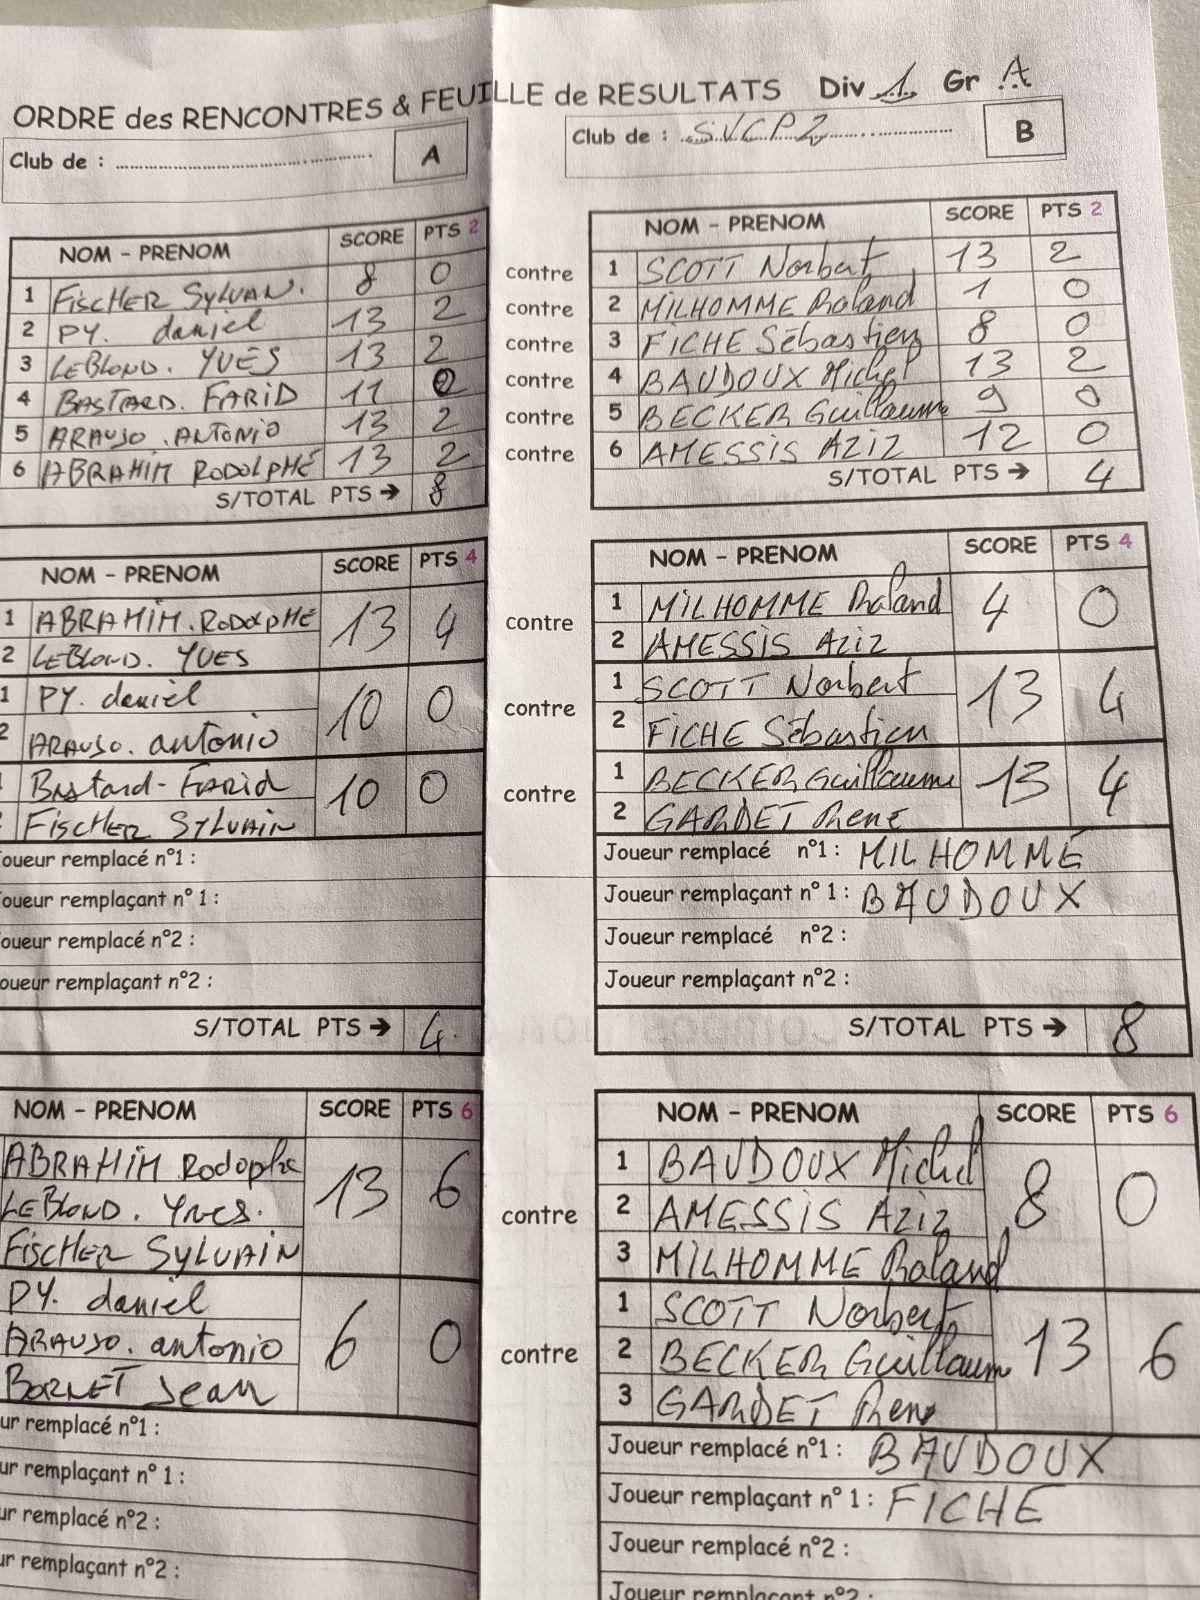 ORDRE des RENCONTRES & FEUILLE de RESULTATS Div 1 Gr A
Club de : A
Club de : SVCP2 B
NOM - PRENOM SCORE PTS 2
1 FISCHER SYLVAN. 8 0
2 PY. daniel 13 2
3 LEBLOND. YVES 13 2
4 BASTARD. FARID 11 0
5 ARAUJO. ANTONIO 13 2
6 ABRAHIM RODOLPHE 13 2
S/TOTAL PTS → 8
contre
contre
contre
contre
contre
contre
NOM - PRENOM SCORE PTS 2
1 SCOTT Norbert 13 2
2 MILHOMME Roland 1 0
3 FICHE Sébastien 8 0
4 BAUDOUX Michel 13 2
5 BECKER Guillaume 9 0
6 AMESSIS AZIZ 12 0
S/TOTAL PTS → 4
NOM - PRENOM SCORE PTS 4
1 ABRAHIM. RODOLPHE 13 4
2 LEBLOND. YVES
1 PY. daniel 10 0
2 ARAUJO. antonio
Bastard - FARID 10 0
FISCHER SYLVAIN
Joueur remplacé n°1 :
Joueur remplaçant n° 1 :
Joueur remplacé n°2 :
Joueur remplaçant n°2 :
S/TOTAL PTS → 4.
contre
contre
contre
NOM - PRENOM SCORE PTS 4
1 MILHOMME Roland 4 0
2 AMESSIS AZIZ
1 SCOTT Norbert 13 4
2 FICHE Sébastien
1 BECKER Guillaume 13 4
2 GARDET Rene
Joueur remplacé n°1 : MILHOMME
Joueur remplaçant n° 1 : BAUDOUX
Joueur remplacé n°2 :
Joueur remplaçant n°2 :
S/TOTAL PTS → 8
NOM - PRENOM SCORE PTS 6
ABRAHIM Rodophe 13 6
LEBLOND. Yves.
FISCHER SYLVAIN
PY. daniel 6 0
ARAUJO. antonio
BORNET Jean
ur remplacé n°1 :
ur remplaçant n° 1 :
ur remplacé n°2 :
ur remplaçant n°2 :
contre
contre
NOM - PRENOM SCORE PTS 6
1 BAUDOUX Michel 8 0
2 AMESSIS AZIZ
3 MILHOMME Roland
1 SCOTT Norbert 13 6
2 BECKER Guillaum
3 GARDET Rene
Joueur remplacé n°1 : BAUDOUX
Joueur remplaçant n° 1 : FICHE
Joueur remplacé n°2 :
Joueur remplaçant n°2 :